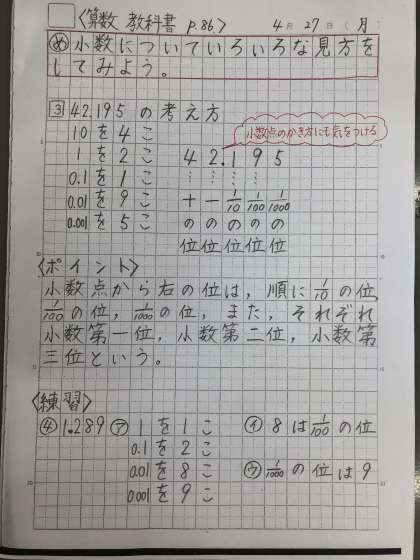 〈算数 教科書 p.86〉 4月27日(月)
め 小数についていろいろな見方を
してみよう。
3 42.195の考え方
10を4こ
小数点のかき方にも気をつける
1を2こ 42.195
0.1を1こ
0.01を9こ 十 一 1/10 1/100 1/1000
0.001を5こ の の の の の
位 位 位 位 位
〈ポイント〉
小数点から右の位は、順に1/10の位、
1/100の位、1/1000の位、また、それぞれ
小数第一位、小数第二位、小数第
三位という。
〈練習〉
④ 1.289 ㋐ 1を1こ ㋑ 8は1/100の位
0.1を2こ
0.01を8こ ㋒ 1/1000の位は9
0.001を9こ